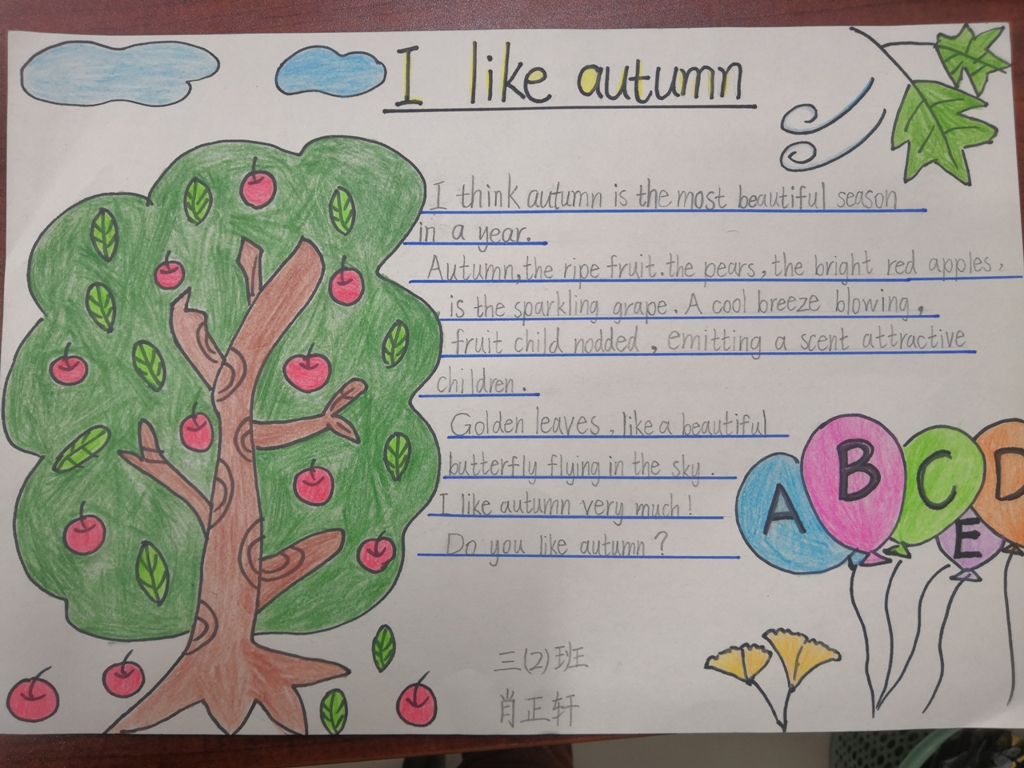 I like autumn
I think autumn is the most beautiful season
in a year.
Autumn, the ripe fruit. the pears, the bright red apples,
is the sparkling grape. A cool breeze blowing,
fruit child nodded, emitting a scent attractive
children.
Golden leaves, like a beautiful
butterfly flying in the sky.
I like autumn very much!
Do you like autumn?
A B C D
E
三(2)班
肖正轩